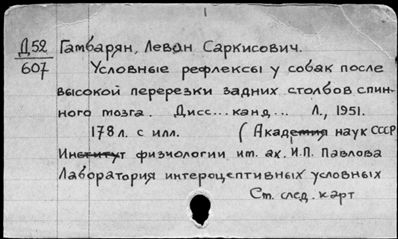 Д52
607
Гамбарян, Леван Саркисович.
Условные рефлексы у собак после
высокой перерезки задних столбов спин-
ного мозга. Дисс... канд... Л., 1951.
178 л. с илл. (Академия наук СССР
Институт физиологии им. ак. И.П. Павлова
Лаборатория интероцептивных условных
См. след. карт